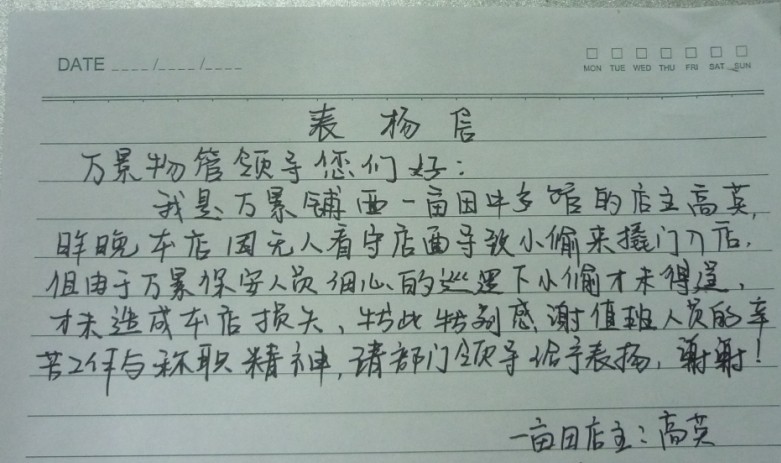 DATE ____/____/____
MON TUE WED THU FRI SAT SUN
表扬信
万景物管领导您们好:
我是万景铺面一亩田中多馆的店主高英,
昨晚本店因无人看守店面导致小偷来撬门入店,
但由于万景保安人员细心的巡逻下小偷才未得逞,
才未造成本店损失、特此特别感谢值班人员的辛
苦工作与称职精神,请部门领导给予表扬,谢谢!
一亩田店主:高英